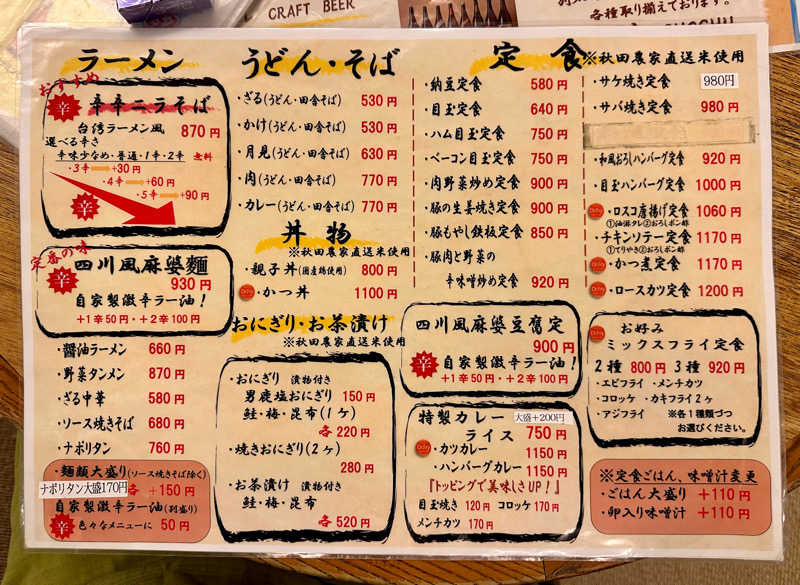 CRAFT BEER
各種取り揃えております。
ラーメン
おすすめ
辛 辛辛ニラそば
台湾ラーメン風 870円
選べる辛さ
辛味少なめ・普通・1辛・2辛 無料
・3辛 +30円
・4辛 +60円
・5辛 +90円
辛
定番の味
辛 四川風麻婆麺
930円
自家製激辛ラー油!
+1辛50円・+2辛100円
・醤油ラーメン 660円
・野菜タンメン 870円
・ざる中華 580円
・ソース焼きそば 680円
・ナポリタン 760円
・麺類大盛り(ソース焼きそば除く)
ナポリタン大盛170円 各 +150円
自家製激辛ラー油(別盛り)
辛 色々なメニューに 50円
うどん・そば
・ざる(うどん・田舎そば) 530円
・かけ(うどん・田舎そば) 530円
・月見(うどん・田舎そば) 630円
・肉(うどん・田舎そば) 770円
・カレー(うどん・田舎そば) 770円
丼物
※秋田農家直送米使用
・親子丼(国産鶏使用) 800円
・かつ丼 1100円
おにぎり・お茶漬け
※秋田農家直送米使用
・おにぎり 漬物付き
男鹿塩おにぎり 150円
鮭・梅・昆布(1ヶ)
各220円
・焼きおにぎり(2ヶ)
280円
・お茶漬け 漬物付き
鮭・梅・昆布
各520円
定食 ※秋田農家直送米使用
・納豆定食 580円
・目玉定食 640円
・ハム目玉定食 750円
・ベーコン目玉定食 750円
・肉野菜炒め定食 900円
・豚の生姜焼き定食 900円
・豚もやし鉄板定食 850円
・豚肉と野菜の
辛味噌炒め定食 920円
四川風麻婆豆腐定
900円
辛 自家製激辛ラー油!
+1辛50円・+2辛100円
特製カレー 大盛+200円
ライス 750円
・カツカレー 1150円
・ハンバーグカレー 1150円
『トッピングで美味しさUP!』
目玉焼き 120円 コロッケ 170円
メンチカツ 170円
・サケ焼き定食 980円
・サバ焼き定食 980円
・和風おろしハンバーグ定食 920円
・目玉ハンバーグ定食 1000円
・ロスコ唐揚げ定食 1060円
①油淋タレ②おろしポン酢
・チキンソテー定食 1170円
①てりやき②おろしポン酢
・かつ煮定食 1170円
・ロースカツ定食 1200円
お好み
ミックスフライ定食
2種 800円 3種 920円
・エビフライ ・メンチカツ
・コロッケ ・カキフライ2ヶ
・アジフライ ※各1種類づつ
お選びください。
※定食ごはん、味噌汁変更
・ごはん大盛り +110円
・卵入り味噌汁 +110円